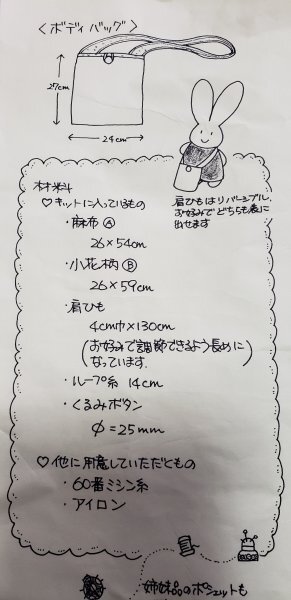 〈ボディバッグ〉
27cm
24cm
肩ひもはリバーシブル、
お好みでどちらも表に
出せます
材料
♡キットに入っているもの
・麻布Ⓐ
26×54cm
・小花柄Ⓑ
26×59cm
・肩ひも
4cm巾×130cm
(お好みで調節できるよう長めに
なっています。)
・ループ糸 14cm
・くるみボタン
φ=25mm
♡他に用意していただくもの
・60番ミシン糸
・アイロン
姉妹品のポシェットも